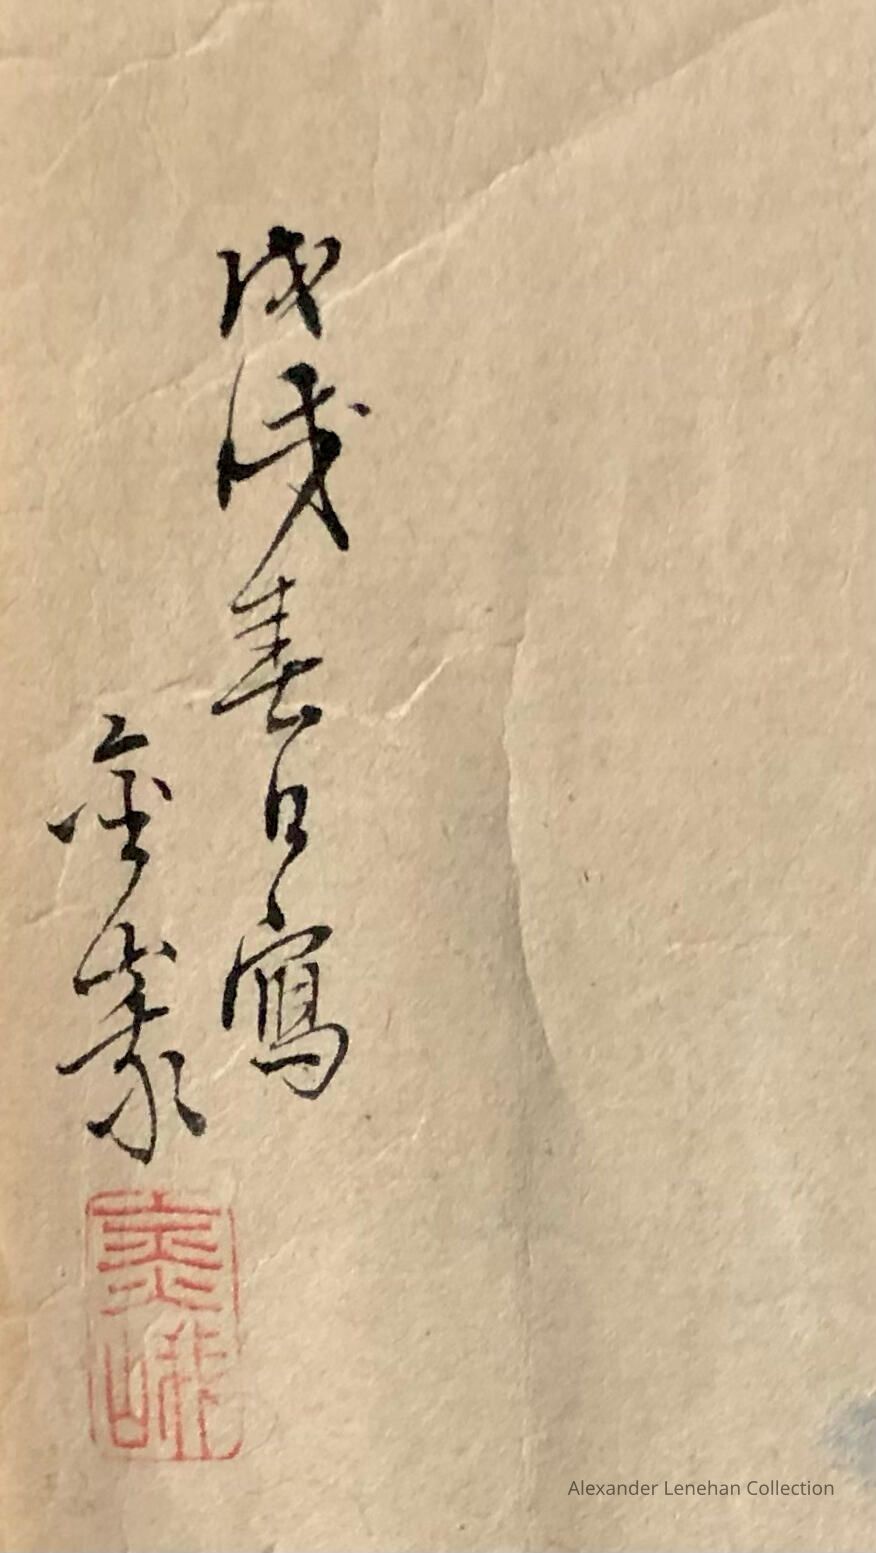 戊戌春日寫
金峩
金峨
Alexander Lenehan Collection